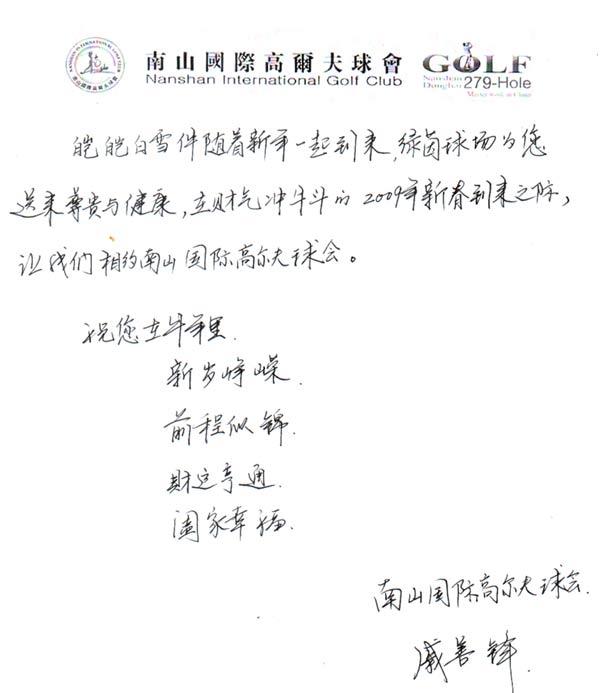 南山國際高爾夫球會
Nanshan International Golf Club
GOLF
Nanshan
Donghai 279-Hole
皑皑白雪伴随着新年一起到来,绿茵球场为您
送来尊贵与健康,在财气冲牛斗的2009年新春到来之际,
让我们相约南山国际高尔夫球会。
祝您在牛年里
新岁峥嵘.
前程似锦.
财运亨通.
阖家幸福.
南山国际高尔夫球会.
戚善锋.